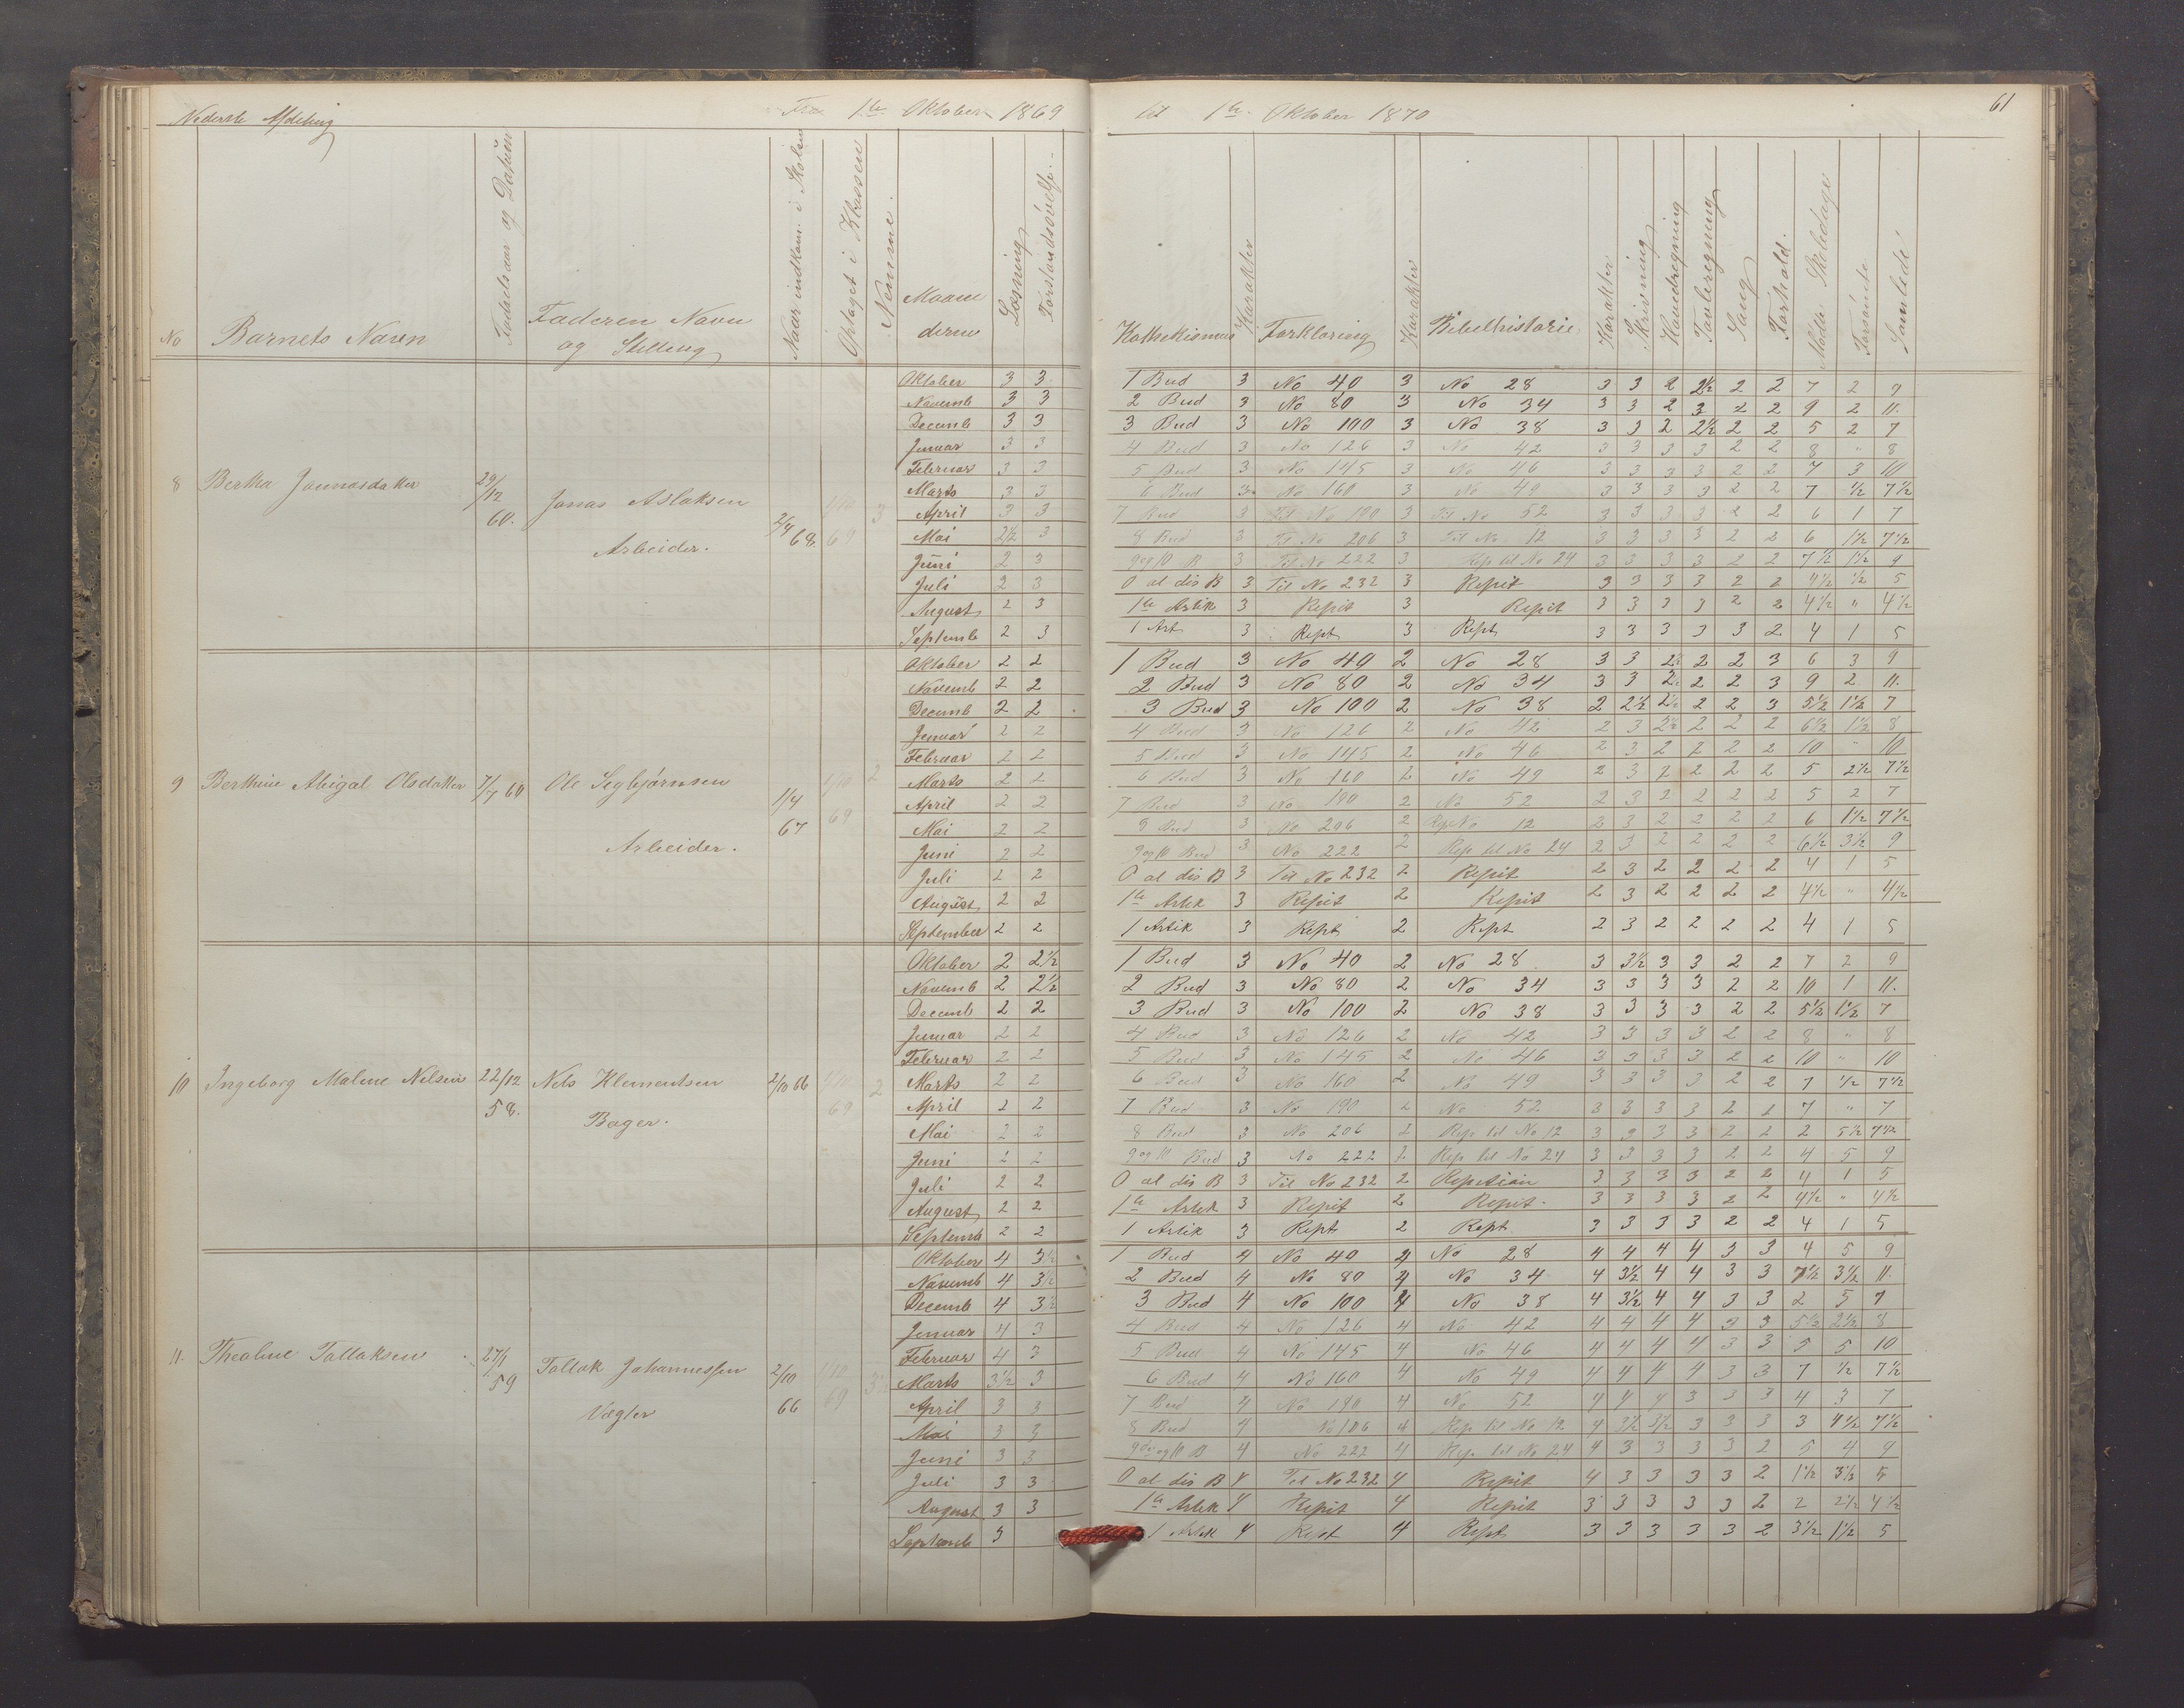 Nederste Afdeling Fra 1te Oktober 1869 til 1te Oktober 1870 61
No Barnets Navn Fødelsaar og Datum Faderen Navn og Stilling Naar indkom. i Skolen Optaget i Klassen Nemme. Maanederne Læsning Forstandsøvelse Kathekismus Karakter Forklaring Karakter Bibelhistorie Karakter Skrivning Hovedregning Tavleregning Sang Forhold. Mødte Skoledage Forsømte Samlede
8 Bertha Jonnasdatter 29/12 60. Jonas Aslaksen Arbeider. 2/4 68 1/10 69 3
Oktober 3 3 1 Bud 3 No 40 3 No 28 3 3 2 2½ 2 2 7 2 9
Novemb 3 3 2 Bud 3 No 80 3 No 34 3 3 2 3 2 2 9 2 11.
Decemb 3 3 3 Bud 3 No 100 3 No 38 3 3 2 2½ 2 2 5 2 7
Januar 3 3 4 Bud 3 No 126 3 No 42 3 3 3 3 2 2 8 " 8
Februar 3 3 5 Bud 3 No 145 3 No 46 3 3 3 3 2 2 7 3 10
Marts 3 3 6 Bud 3 No 160 3 No 49 3 3 3 3 2 2 7 ½ 7½
April 3 3 7 Bud 3 Til No 190 3 Til No 52 3 3 3 3 2 2 6 1 7
Mai 2½ 3 8 Bud 3 Til No 206 3 Til No 12 3 3 3 3 2 2 6 1½ 7½
Juni 2 3 9 og 10 B 3 Til No 222 3 Rep til No 24 3 3 3 3 2 2 7½ 1½ 9
Juli 2 3 O al dis B 3 Til No 232 3 Repit 3 3 3 3 2 2 4½ ½ 5
August 2 3 1te Artik 3 Repit 3 Repit 3 3 3 3 2 2 4½ " 4½
Septemb 2 3 1 Art 3 Rept 3 Rept 3 3 3 3 3 2 4 1 5
9 Berthine Abigal Olsdatter 7/7 60 Ole Segbjørnsen Arbeider. 1/4 67 1/10 69 2
Oktober 2 2 1 Bud 3 No 40 2 No 28 3 3 2½ 2 2 3 6 3 9
Novemb 2 2 2 Bud 3 No 80 2 No 34 3 3 2 2 2 3 9 2 11.
Decemb 2 2 3 Bud 3 No 100 2 No 38 2 2½ 2½ 2 2 3 5½ 1½ 7
Januar 2 2 4 Bud 3 No 126 2 No 42 2 3 2½ 2 2 2 6½ 1½ 8
Februar 2 2 5 Bud 3 No 145 2 No 46 2 3 2 2 2 2 10 " 10
Marts 2 2 6 Bud 3 No 160 2 No 49 2 3 2 2 2 2 5 2½ 7½
April 2 2 7 Bud 3 No 190 2 No 52 2 3 2 2 2 2 5 2 7
Mai 2 2 8 Bud 3 No 206 2 Rep No 12 2 3 2 2 2 2 6 1½ 7½
Juni 2 2 9 og 10 Bud 3 No 222 2 Rep til No 24 2 3 2 2 2 2 6½ 3½ 9
Juli 2 2 O al dis B 3 Til No 232 2 Repit 2 3 2 2 2 2 4 1 5
August 2 2 1te Artik 3 Repit 2 Repit 2 3 2 2 2 2 4½ " 4½
September 2 2 1 Artik 3 Rept 2 Rept 2 3 2 2 2 2 4 1 5
10 Ingeborg Maline Nilsen 22/12 58. Nels Klementsen Bager. 2/10 66 1/10 69 2
Oktober 2 2½ 1 Bud 3 No 40 2 No 28 3 3½ 3 3 2 2 7 2 9
Novemb 2 2½ 2 Bud 3 No 80 2 No 34 3 3 3 3 2 2 10 1 11.
Decemb 2 2 3 Bud 3 No 100 2 No 38 3 3 3 3 2 2 5½ 1½ 7
Januar 2 2 4 Bud 3 No 126 2 No 42 3 3 3 3 2 2 8 " 8
Februar 2 2 5 Bud 3 No 145 2 No 46 3 3 3 3 2 2 10 " 10
Marts 2 2 6 Bud 3 No 160 2 No 49 3 3 3 3 2 2 7 ½ 7½
April 2 2 7 Bud 3 No 190 2 No 52 3 3 3 3 2 2 7 " 7
Mai 2 2 8 Bud 3 No 206 2 Rep til No 12 3 3 3 3 2 2 2 5½ 7½
Juni 2 2 9 og 10 Bud 3 No 222 2 Rep til No 24 3 3 3 3 2 2 4 5 9
Juli 2 2 O al dis B 3 Til No 232 2 Repetian 3 3 3 3 2 2 4 1 5
August 2 2 1te Artik 3 Repit 2 Repit. 3 3 3 3 2 2 4½ " 4½
Septemb 2 2 1 Artik 3 Rept 2 Rept. 3 3 3 3 2 2 4 1 5
11. Thealine Tallaksen 27/1 59 Tallak Johannessen Vægter 2/10 66 1/10 69 3½
Oktober 4 3½ 1 Bud 4 No 40 4 No 28 4 4 4 4 3 3 4 5 9
Novemb 4 3½ 2 Bud 4 No 80 4 No 34 4 3½ 4 4 3 3 7½ 3½ 11.
Decemb 4 3½ 3 Bud 4 No 100 4 No 38 4 3½ 4 4 3 3 2 5 7
Januar 4 3 4 Bud 4 No 126 4 No 42 4 4 4 4 3 3 5½ 2½ 8
Februar 4 3 5 Bud 4 No 145 4 No 46 4 4 4 4 3 3 5 5 10
Marts 3½ 3 6 Bud 4 No 160 4 No 49 4 4 4 4 3 3 7 ½ 7½
April 3 3 7 Bud 4 No 190 4 No 52 4 4 4 3 3 3 4 3 7
Mai 3 3 8 Bud 4 No 106 4 Rep til No 12 4 3½ 3½ 3 3 3 3 4½ 7½
Juni 3 3 9de og 10 B 4 No 222 4 Rep. til No 24 4 3 3 3 3 2 5 4 9
Juli 3 3 O al dis B 4 Til No 232 4 Repit 4 3 3 3 3 2 1½ 3½ 5
August 3 3 1te Artik 4 Repit 4 Repit 3 3 3 3 3 2 2 2½ 4½
Septemb 3 1 Artik 4 Rept 4 Rept 3 3 3 3 3 2 3½ 1½ 5